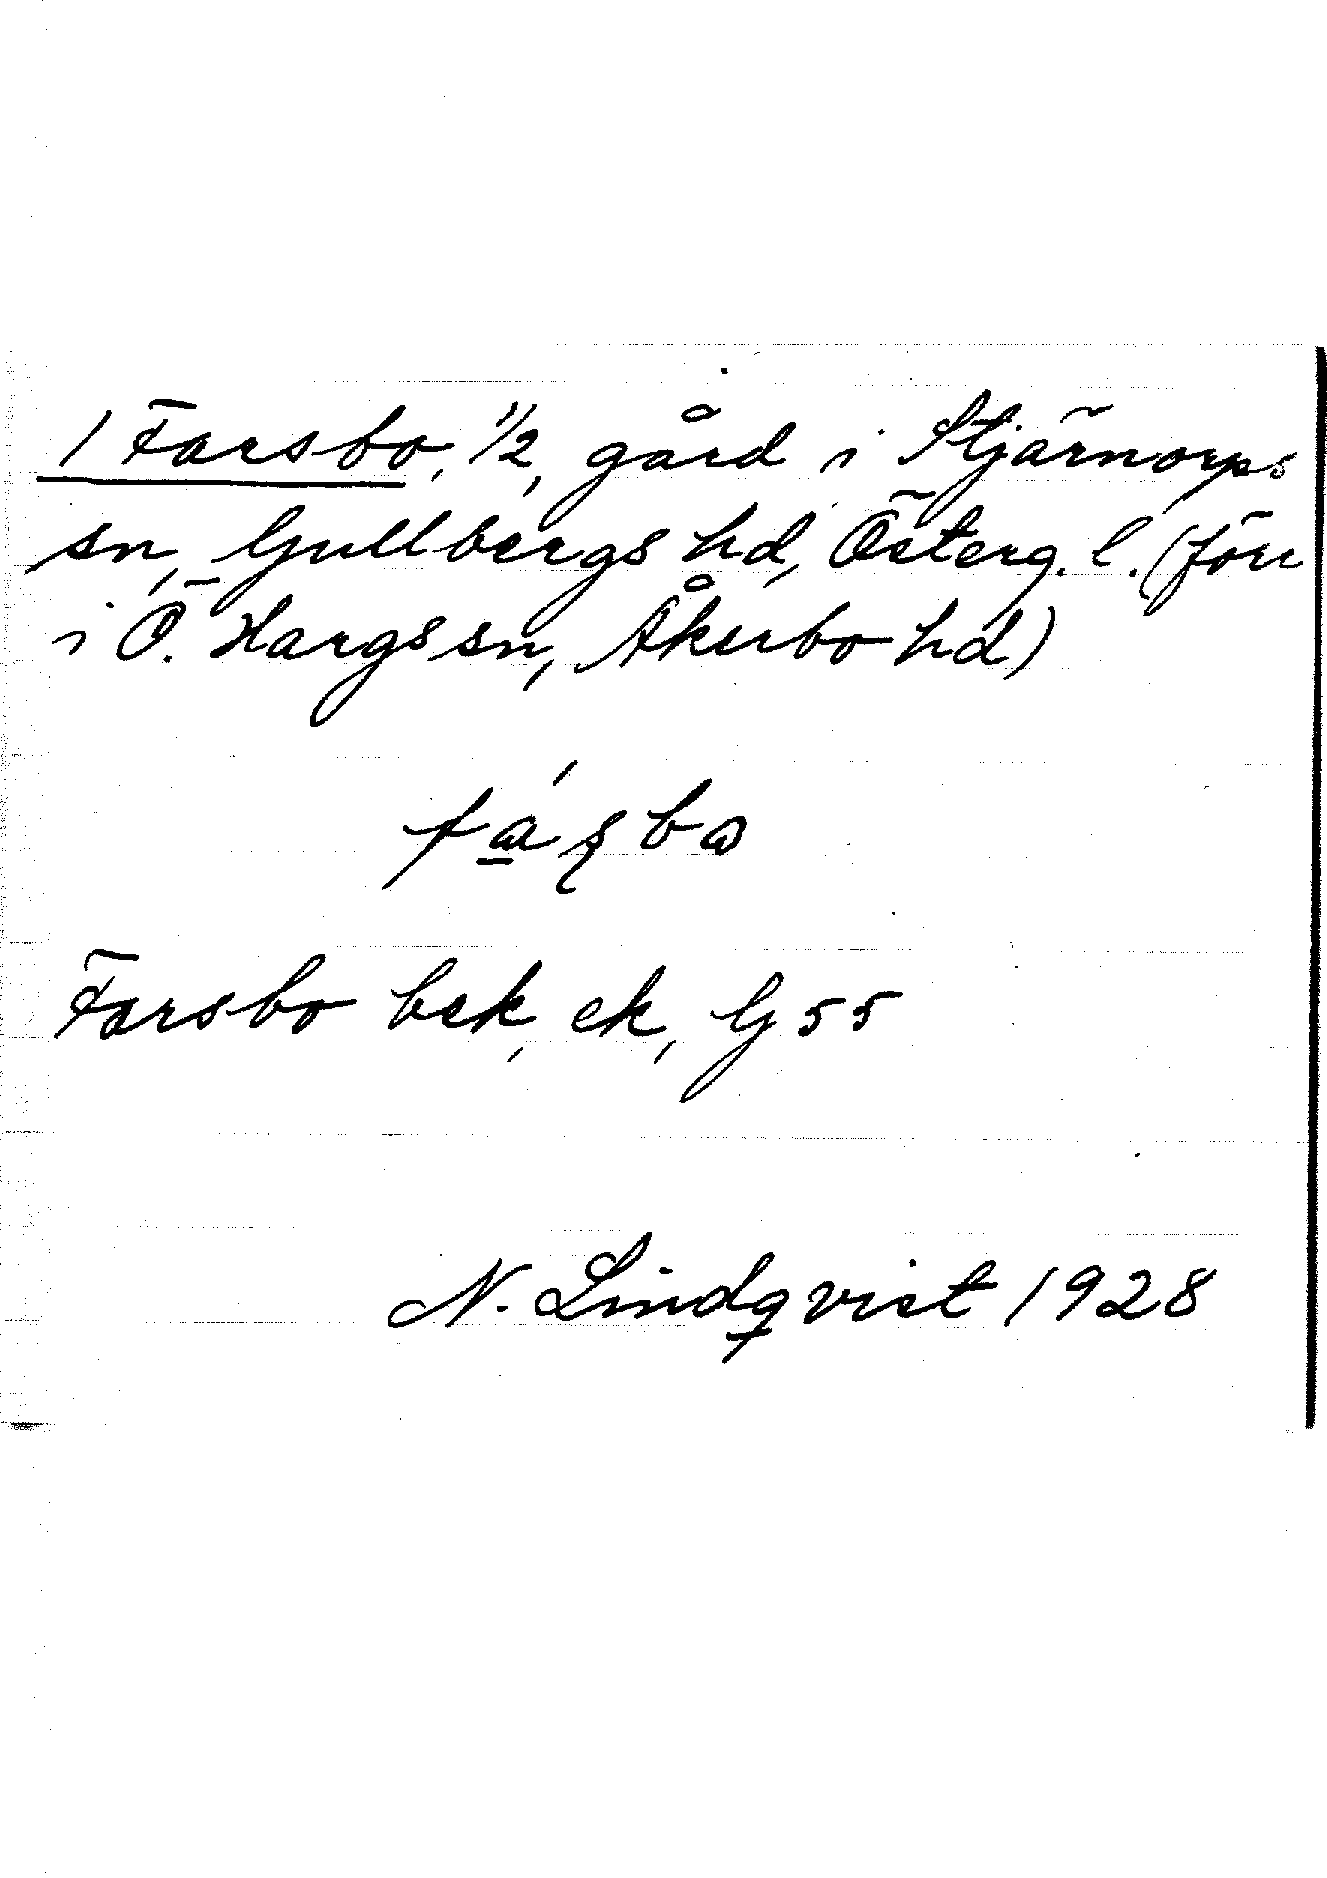 1 Farsbo, 1/2, gård i Stjärnorps
sn, Gullbergs hd, Österg. l. (förr
i Ö. Hargs sn, Åkerbo hd)
Farsbo bek, ek, G 55
N. Lindqvist 1928